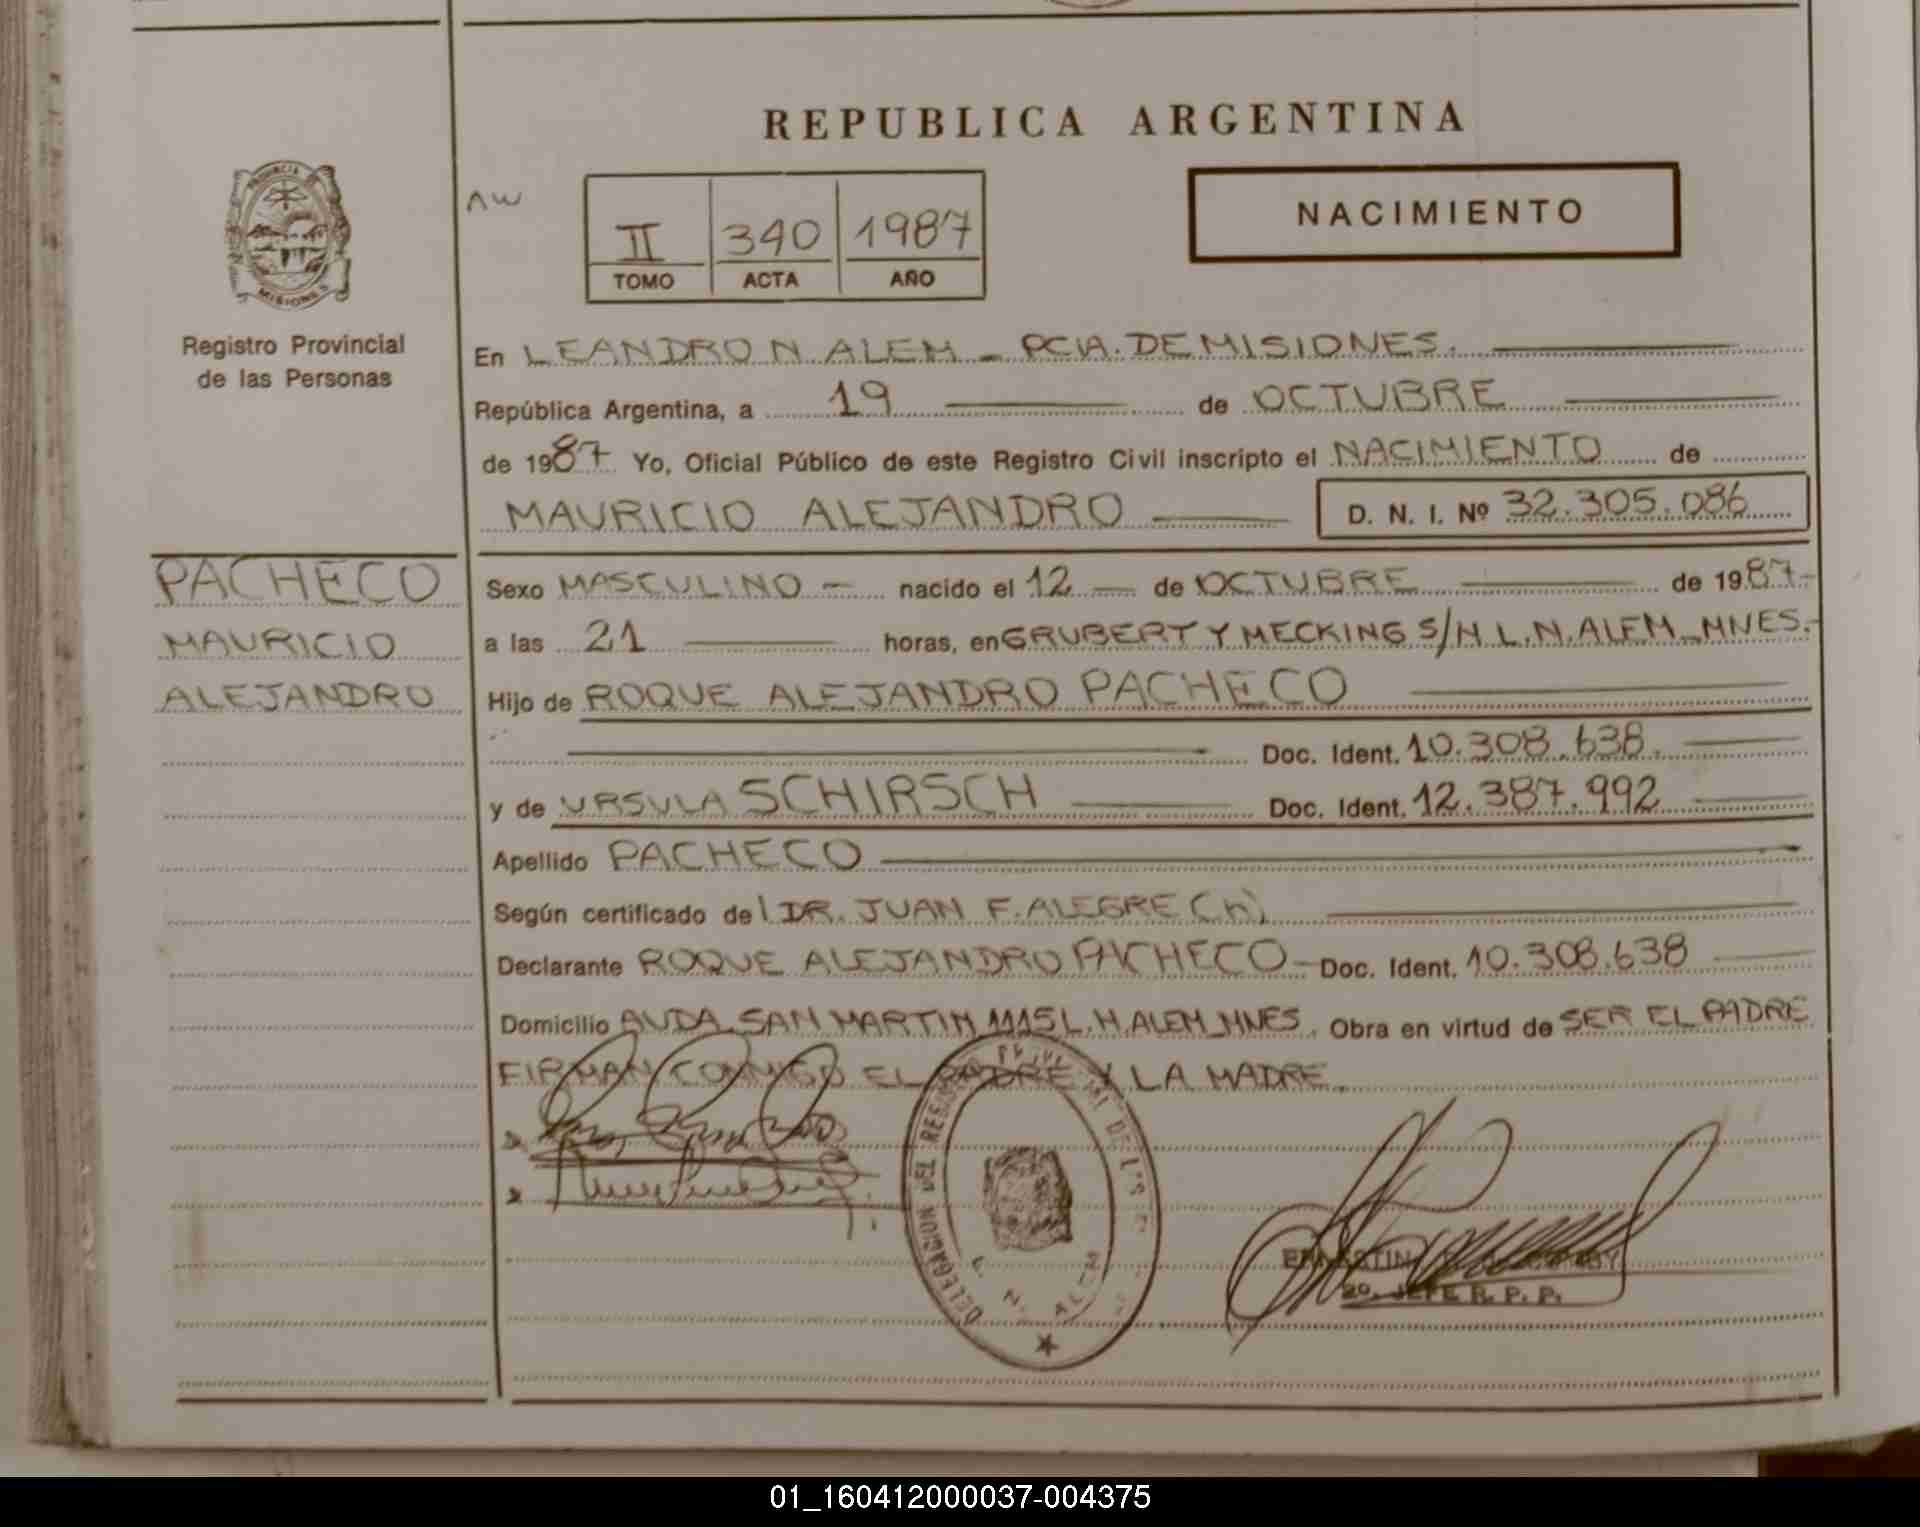 REPUBLICA ARGENTINA
NACIMIENTO
II 340 1987
TOMO ACTA AÑO
PROVINCIA DE
MISIONES
Registro Provincial
de las Personas
En LEANDRO N. ALEM - PCIA. DE MISIONES.
República Argentina, a 19 de OCTUBRE
de 1987 Yo, Oficial Público de este Registro Civil inscripto el NACIMIENTO de
MAURICIO ALEJANDRO D. N. I. Nº 32.305.086
PACHECO
MAURICIO
ALEJANDRO
Sexo MASCULINO - nacido el 12 - de OCTUBRE de 1987-
a las 21 horas, en GRUBERT Y MECKING S/N L.N. ALEM - MNES.-
Hijo de ROQUE ALEJANDRO PACHECO
Doc. Ident. 10.308.638.
y de URSULA SCHIRSCH Doc. Ident. 12.387.992
Apellido PACHECO
Según certificado del DR. JUAN F. ALEGRE (h)
Declarante ROQUE ALEJANDRO PACHECO - Doc. Ident. 10.308.638
Domicilio AVDA. SAN MARTIN 1115 L.N. ALEM - MNES. Obra en virtud de SER EL PADRE
FIRMAN CONMIGO EL PADRE Y LA MADRE.
DELEGACION DEL
L. N. ALEM
2º. JEFE R. P. P.
01_160412000037-004375